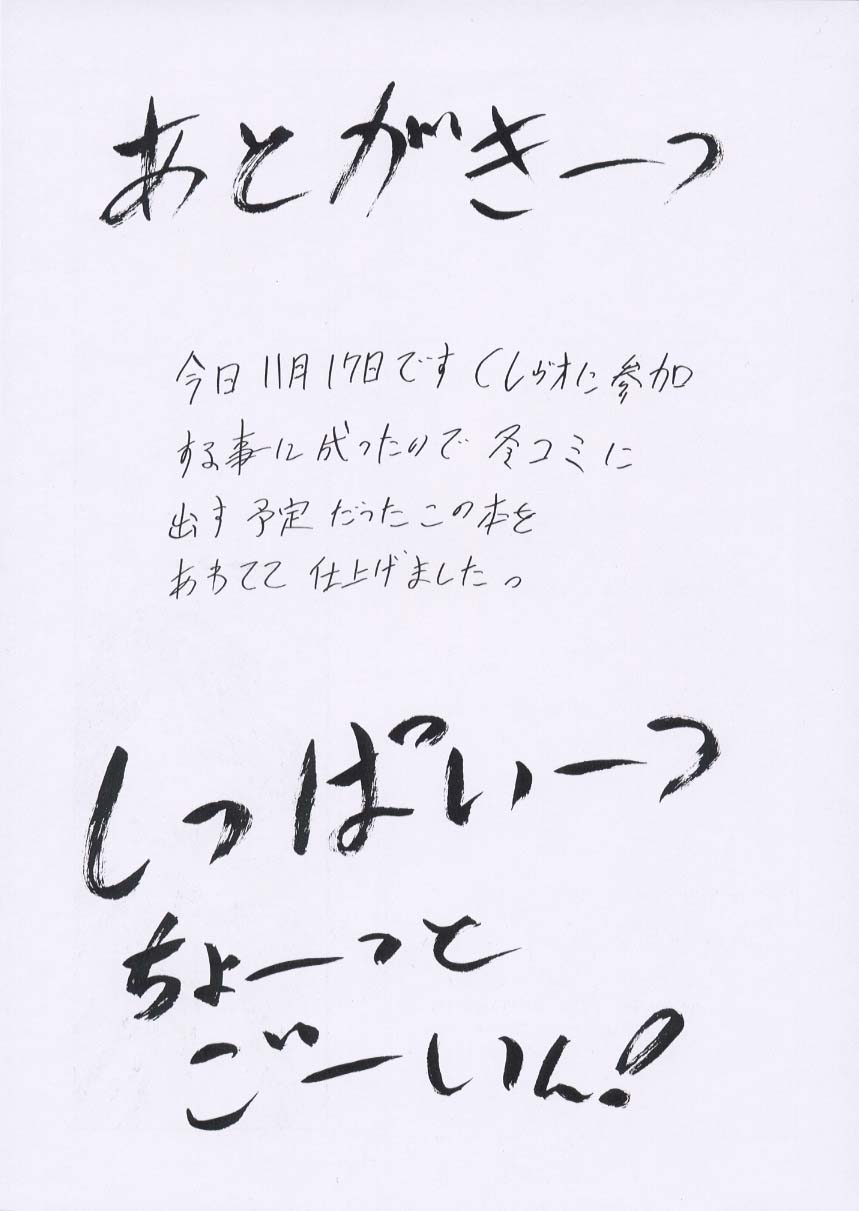 あとがきーっ
今日11月17日です くしりオに参加
する事に成ったので 冬コミに
出す予定だったこの本を
あわてて 仕上げましたっ
しっぱいーっ
ちょーっと
ごーいん!